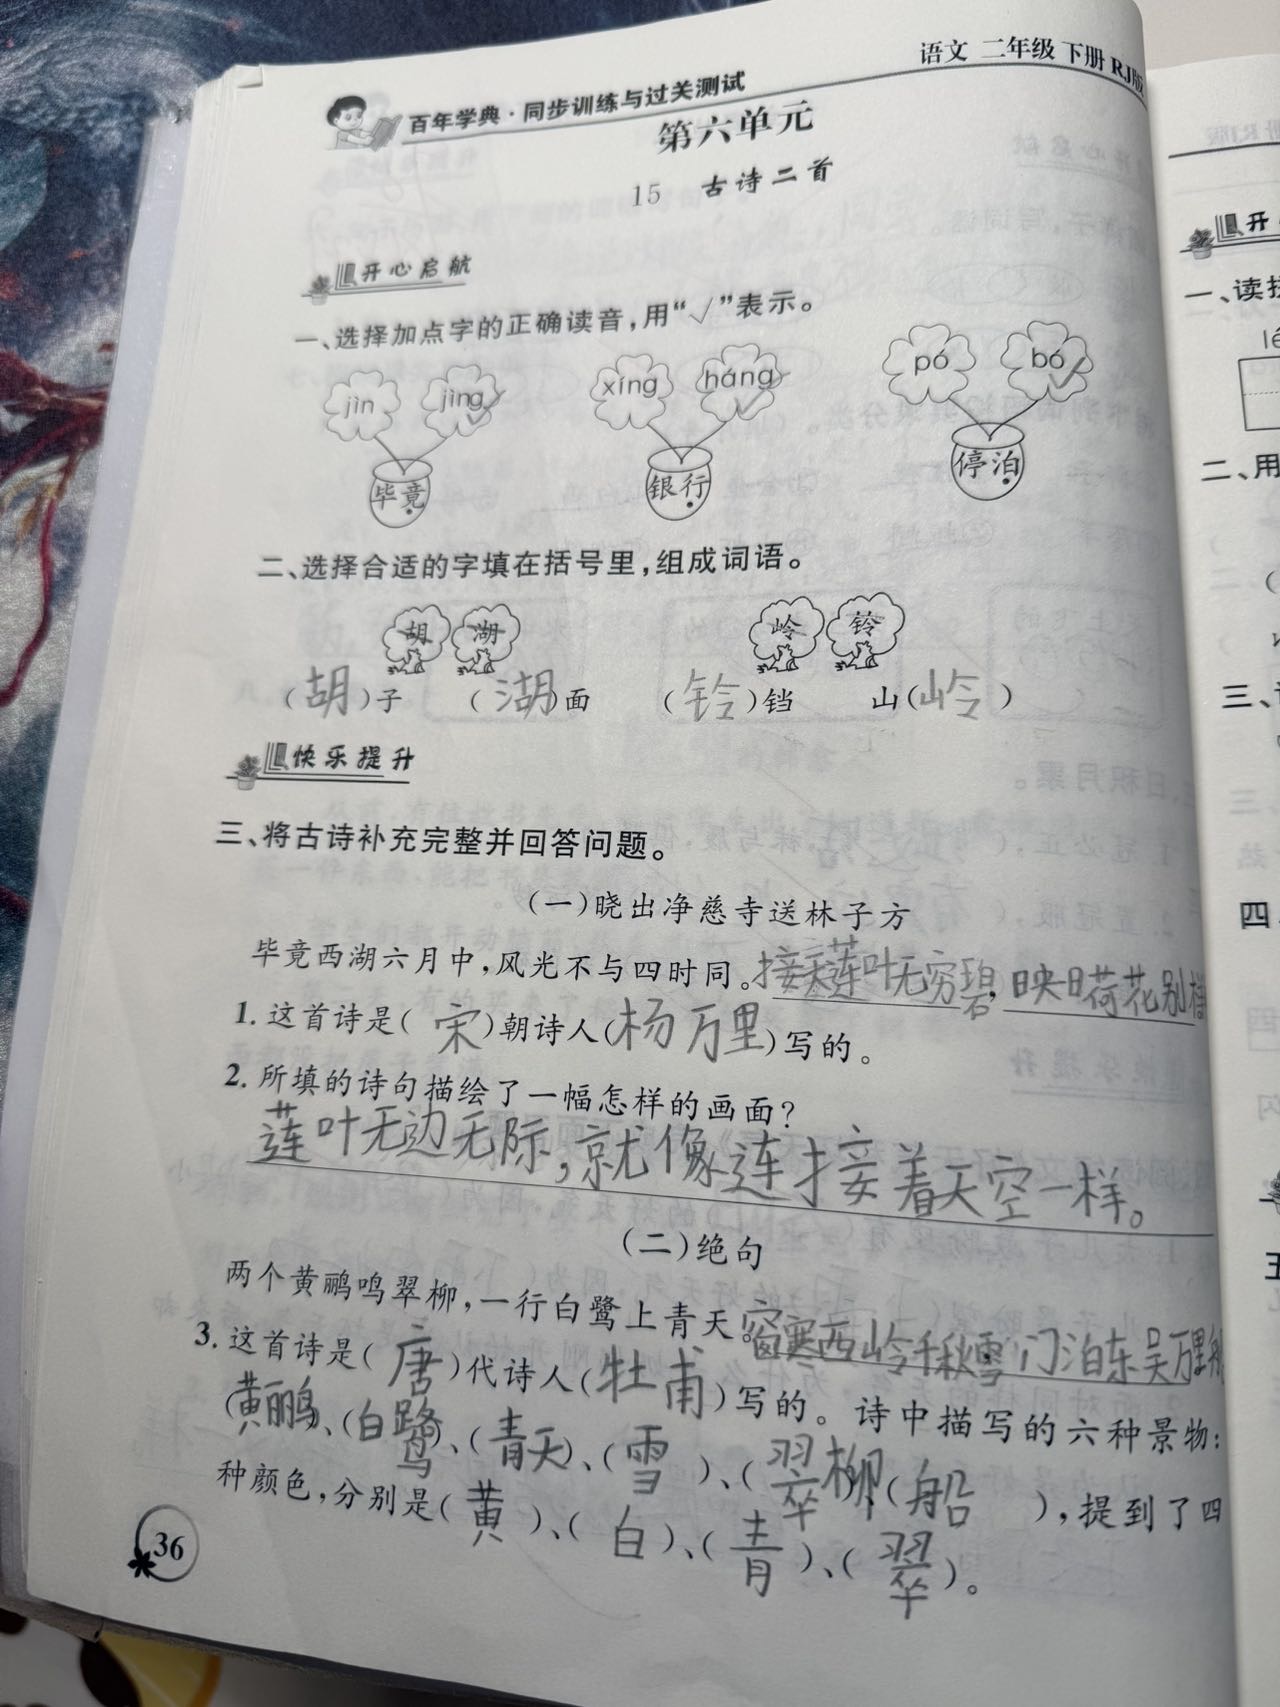 语文 二年级 下册 RJ版
百年学典·同步训练与过关测试
第六单元
15 古诗二首
开心启航
一、选择加点字的正确读音,用“√”表示。
jìn jìng√ xíng háng√ pó bó√
毕竟 银行 停泊
二、选择合适的字填在括号里,组成词语。
胡 湖 岭 铃
(胡)子 (湖)面 (铃)铛 山(岭)
快乐提升
三、将古诗补充完整并回答问题。
(一)晓出净慈寺送林子方
毕竟西湖六月中,风光不与四时同。接天莲叶无穷碧,映日荷花别样
1.这首诗是(宋)朝诗人(杨万里)写的。
2.所填的诗句描绘了一幅怎样的画面?
莲叶无边无际,就像连接着天空一样。
(二)绝句
两个黄鹂鸣翠柳,一行白鹭上青天。窗寒西岭千秋雪,门泊东吴万里船
3.这首诗是(唐)代诗人(牡甫)写的。诗中描写的六种景物:
(黄鹂)、(白鹭)、(青天)、(雪)、(翠柳)(船),提到了四
种颜色,分别是(黄)、(白)、(青)、(翠)。
36
开
一、读拼
二、用
三、
四
五